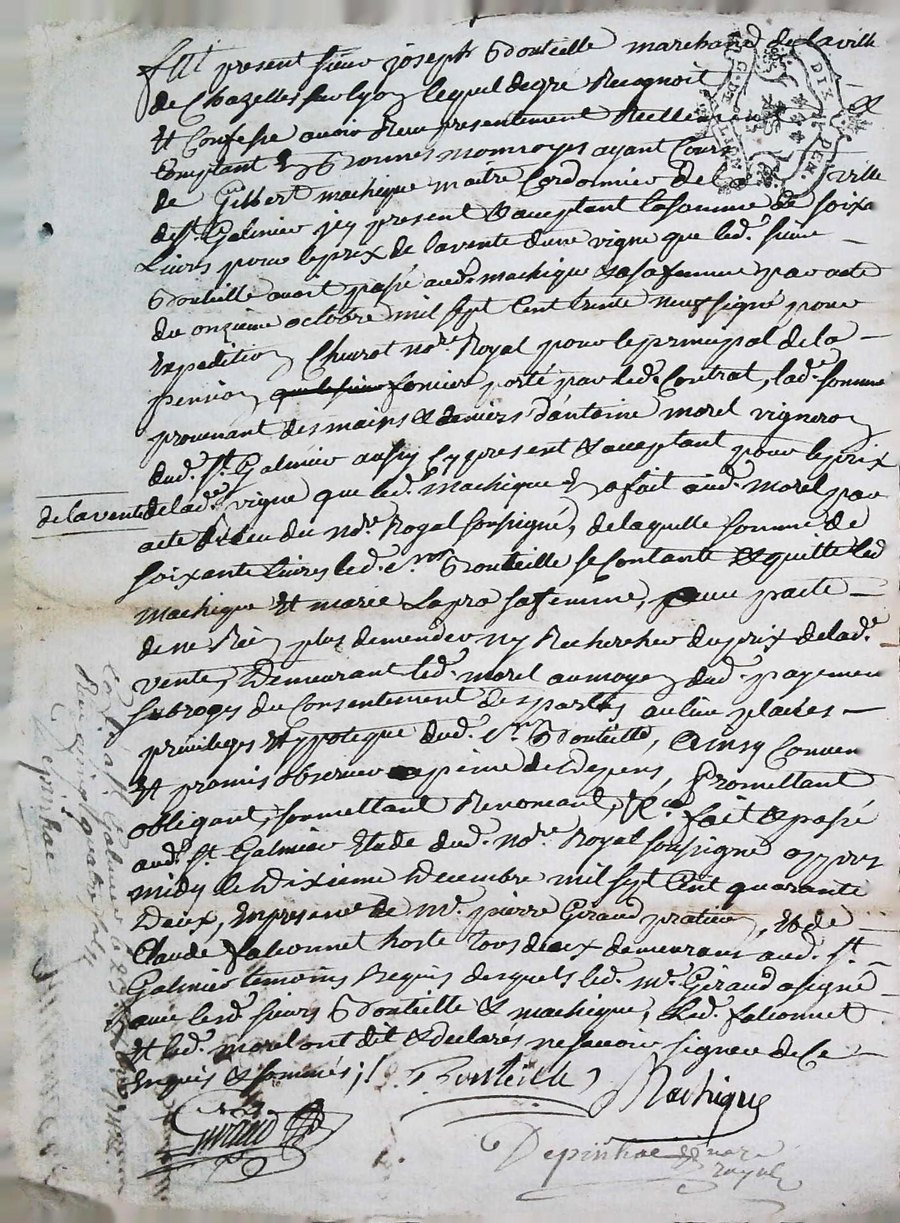 fut present sieur joseph Bouteille marchand de la ville
de Chazelles sur lyon lequel de gre Recognoit
Et Confesse avoir Receu presentement Reellement
Comptant En Bonnes monnoyes ayant Cours
de Gilbert machique maitre Cordonnier de ville
de St. Galmier jcy present & acceptant la somme de soixa
Livres pour le prix de la vente dune vigne que led. sieur
Bouteille avoit passé aud. machique & a sa femme par acte
du onzieme octobre mil sept Cent trente neuf signé pour
Expedition Churot nore. Royal pour le principal de la
pension fonciere porté par led. Contrat, lad. somme
provenant des mains & deniers dantoine morel vigneron
dud. St. Galmier aussy jcy present & acceptant pour le prix
de la vente de lad. vigne que led. machique En a fait aud. morel par
acte Receu du nore. Royal soussigné, de laquelle somme de
soixante Livres led. sr. Bouteille se Contante & quitte led
machique Et marie Lapra sa femme, pacte
de ne Rien plus demender ny Rechercher du prix de lad.
vente, Demeurant led. morel au moyen dud. payemen
subrogés du Consentement des parties au lieu places
privileges Et ypoteque dud. sr. Bouteille, Ainsy Conven
Et promis observer a peine de Depens, Promettant
obligant, soumettant Renoncant, &ca. fait & passé
aud. St. Galmier Etude dud. nore. Royal soussigné appres
midy le Dixieme Decembre mil sept Cent quarante
Deux, En presance de Mr. pierre Giraud praticien, Et de
Claude falconnet hoste tous deux demeurans aud. St.
Galmier temoins Requis desquels led. Mr. Giraud a signé
avec lesd. sieurs Bouteille & machique, & led. falconnet
Et led. morel ont dit & declarés ne savoir signer de Ce
Enquis & sommés ;!
Bouteille
Machique
Giraud
Depinhac nore
royal
Galmier le
Receu vingt quatre sols
Depinhac
DIX
DEN